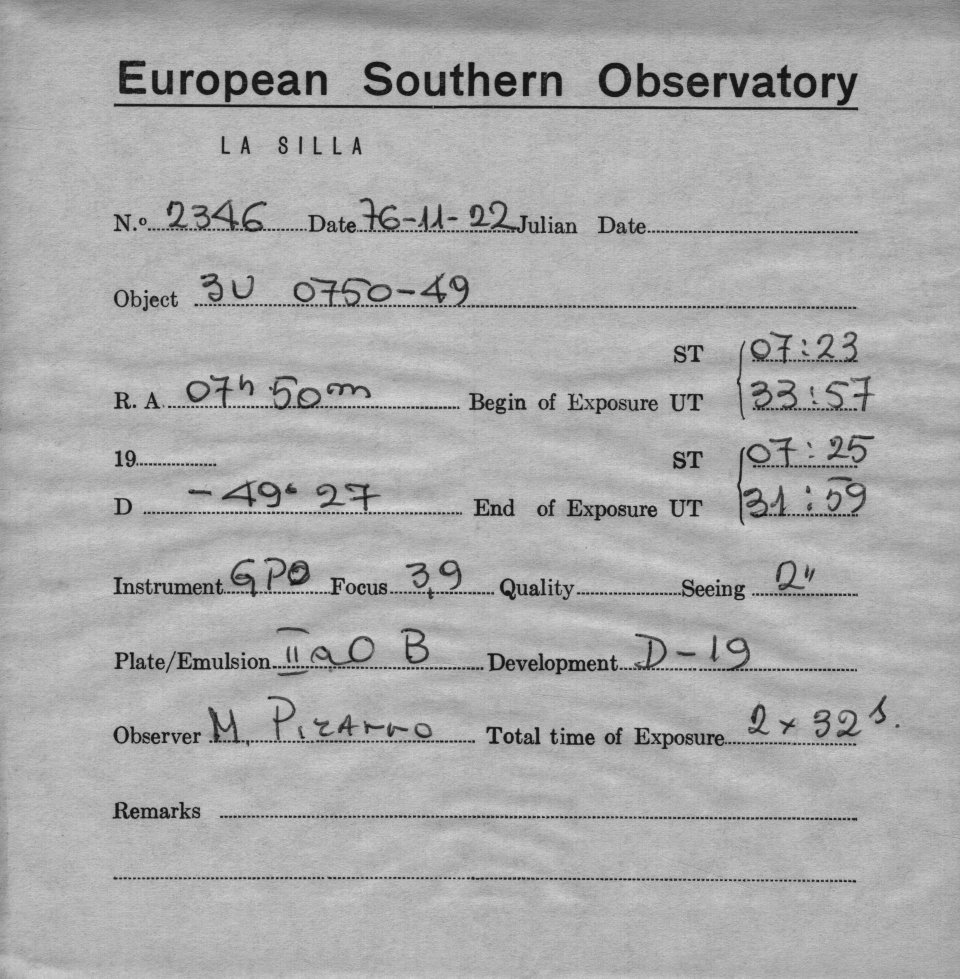 European Southern Observatory
LA SILLA
N.º 2346 Date 76-11-22 Julian Date
Object 3U 0750-49
ST 07:23
R. A. 07h 50m Begin of Exposure UT 33:57
19 ST 07:25
D -49° 27 End of Exposure UT 31:59
Instrument GPO Focus 3,9 Quality Seeing 2"
Plate/Emulsion IIaO B Development D-19
Observer M. Pizarro Total time of Exposure 2 x 32 s.
Remarks